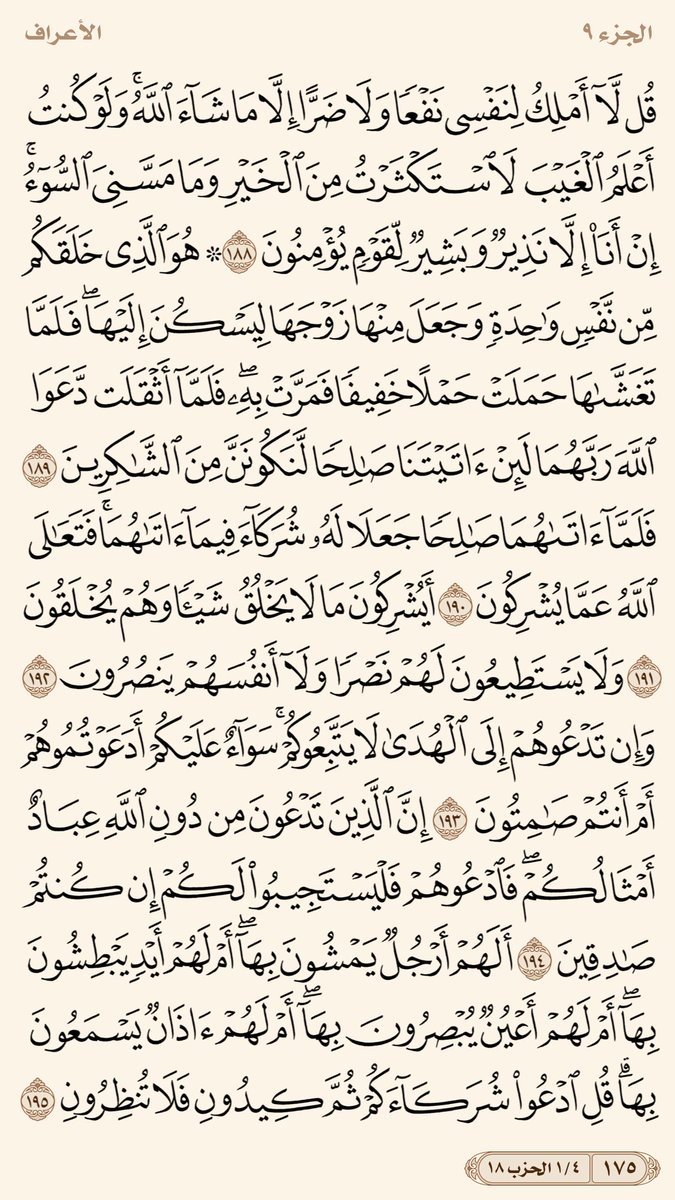 الجزء ٩ الأعراف
قُل لَّآ أَمْلِكُ لِنَفْسِى نَفْعًا وَلَا ضَرًّا إِلَّا مَا شَآءَ ٱللَّهُ ۚ وَلَوْ كُنتُ
أَعْلَمُ ٱلْغَيْبَ لَٱسْتَكْثَرْتُ مِنَ ٱلْخَيْرِ وَمَا مَسَّنِىَ ٱلسُّوٓءُ ۚ
إِنْ أَنَا۠ إِلَّا نَذِيرٌ وَبَشِيرٌ لِّقَوْمٍ يُؤْمِنُونَ ١٨٨ ۞ هُوَ ٱلَّذِى خَلَقَكُم
مِّن نَّفْسٍ وَٰحِدَةٍ وَجَعَلَ مِنْهَا زَوْجَهَا لِيَسْكُنَ إِلَيْهَا ۖ فَلَمَّا
تَغَشَّىٰهَا حَمَلَتْ حَمْلًا خَفِيفًا فَمَرَّتْ بِهِۦ ۖ فَلَمَّآ أَثْقَلَت دَّعَوَا
ٱللَّهَ رَبَّهُمَا لَئِنْ ءَاتَيْتَنَا صَٰلِحًا لَّنَكُونَنَّ مِنَ ٱلشَّٰكِرِينَ ١٨٩
فَلَمَّآ ءَاتَىٰهُمَا صَٰلِحًا جَعَلَا لَهُۥ شُرَكَآءَ فِيمَآ ءَاتَىٰهُمَا ۚ فَتَعَٰلَى
ٱللَّهُ عَمَّا يُشْرِكُونَ ١٩٠ أَيُشْرِكُونَ مَا لَا يَخْلُقُ شَيْـًٔا وَهُمْ يُخْلَقُونَ
١٩١ وَلَا يَسْتَطِيعُونَ لَهُمْ نَصْرًا وَلَآ أَنفُسَهُمْ يَنصُرُونَ ١٩٢
وَإِن تَدْعُوهُمْ إِلَى ٱلْهُدَىٰ لَا يَتَّبِعُوكُمْ ۚ سَوَآءٌ عَلَيْكُمْ أَدَعَوْتُمُوهُمْ
أَمْ أَنتُمْ صَٰمِتُونَ ١٩٣ إِنَّ ٱلَّذِينَ تَدْعُونَ مِن دُونِ ٱللَّهِ عِبَادٌ
أَمْثَالُكُمْ ۖ فَٱدْعُوهُمْ فَلْيَسْتَجِيبُوا۟ لَكُمْ إِن كُنتُمْ
صَٰدِقِينَ ١٩٤ أَلَهُمْ أَرْجُلٌ يَمْشُونَ بِهَآ ۖ أَمْ لَهُمْ أَيْدٍ يَبْطِشُونَ
بِهَآ ۖ أَمْ لَهُمْ أَعْيُنٌ يُبْصِرُونَ بِهَآ ۖ أَمْ لَهُمْ ءَاذَانٌ يَسْمَعُونَ
بِهَا ۗ قُلِ ٱدْعُوا۟ شُرَكَآءَكُمْ ثُمَّ كِيدُونِ فَلَا تُنظِرُونِ ١٩٥
١٧٥ ١/٤ الحزب ١٨